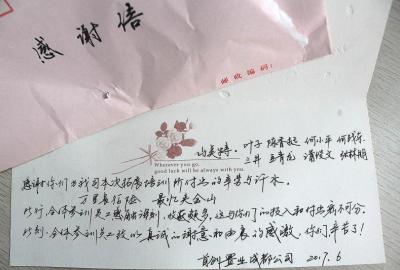 感谢信
邮政编码：
Wherever you go,
good luck will be always with you.
叶子 陈香起 何小平 何晓东
三井 王青龙 潘俊文 张林明
感谢你们为我司本次拓展培训所付出的辛苦与汗水。
万里长伯险 最忆是金山
此行，全体参训员工感触深刻，收获颇多，这与你们的投入和付出密不可分。
此刻，全体参训员工致以真诚的谢意和由衷的感激，你们辛苦了！
首创置业成都公司 2017.6